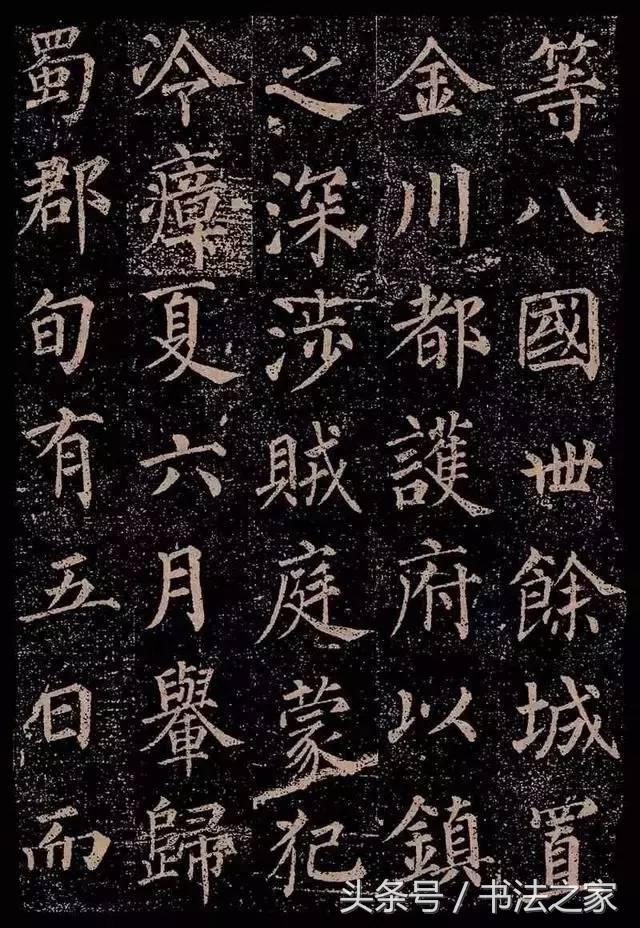 等八國卌餘城置
金川都護府以鎮
之深涉賊庭蒙犯
冷瘴夏六月轝歸
蜀郡旬有五日而
头条号 / 书法之家